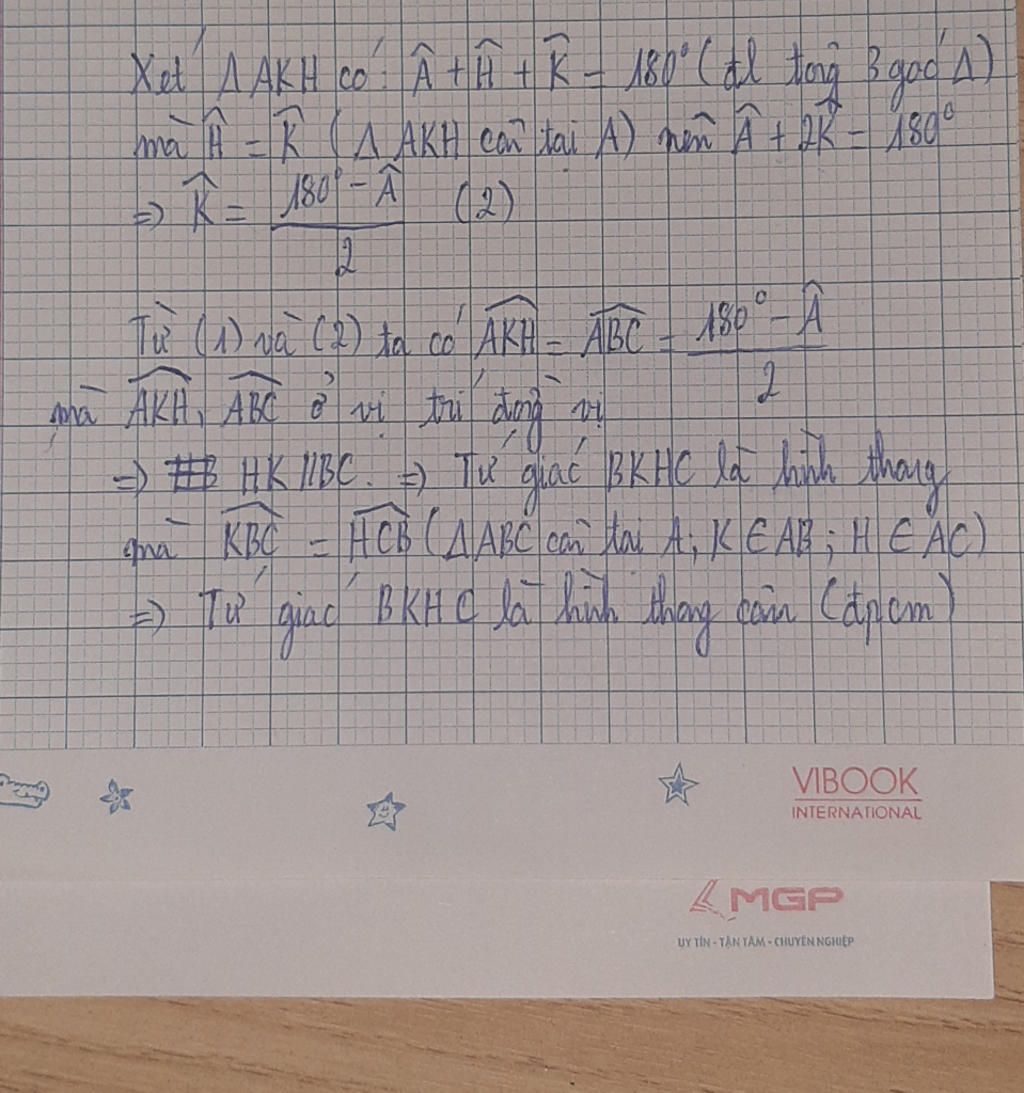 Xét Δ AKH có: Â + Ĥ + K̂ = 180° (đl tổng 3 góc Δ)
mà Ĥ = K̂ (Δ AKH cân tại A) nên Â + 2K̂ = 180°
=> K̂ = (180° - Â)/2 (2)
Từ (1) và (2) ta có ∠AKH = ∠ABC = (180° - Â)/2
mà ∠AKH, ∠ABC ở vị trí đồng vị
=> HK // BC. => Tứ giác BKHC là hình thang
mà ∠KBC = ∠HCB (Δ ABC cân tại A; K ∈ AB; H ∈ AC)
=> Tứ giác BKHC là hình thang cân (đpcm)
VIBOOK
INTERNATIONAL
MGP
UY TÍN - TẬN TÂM - CHUYÊN NGHIỆP